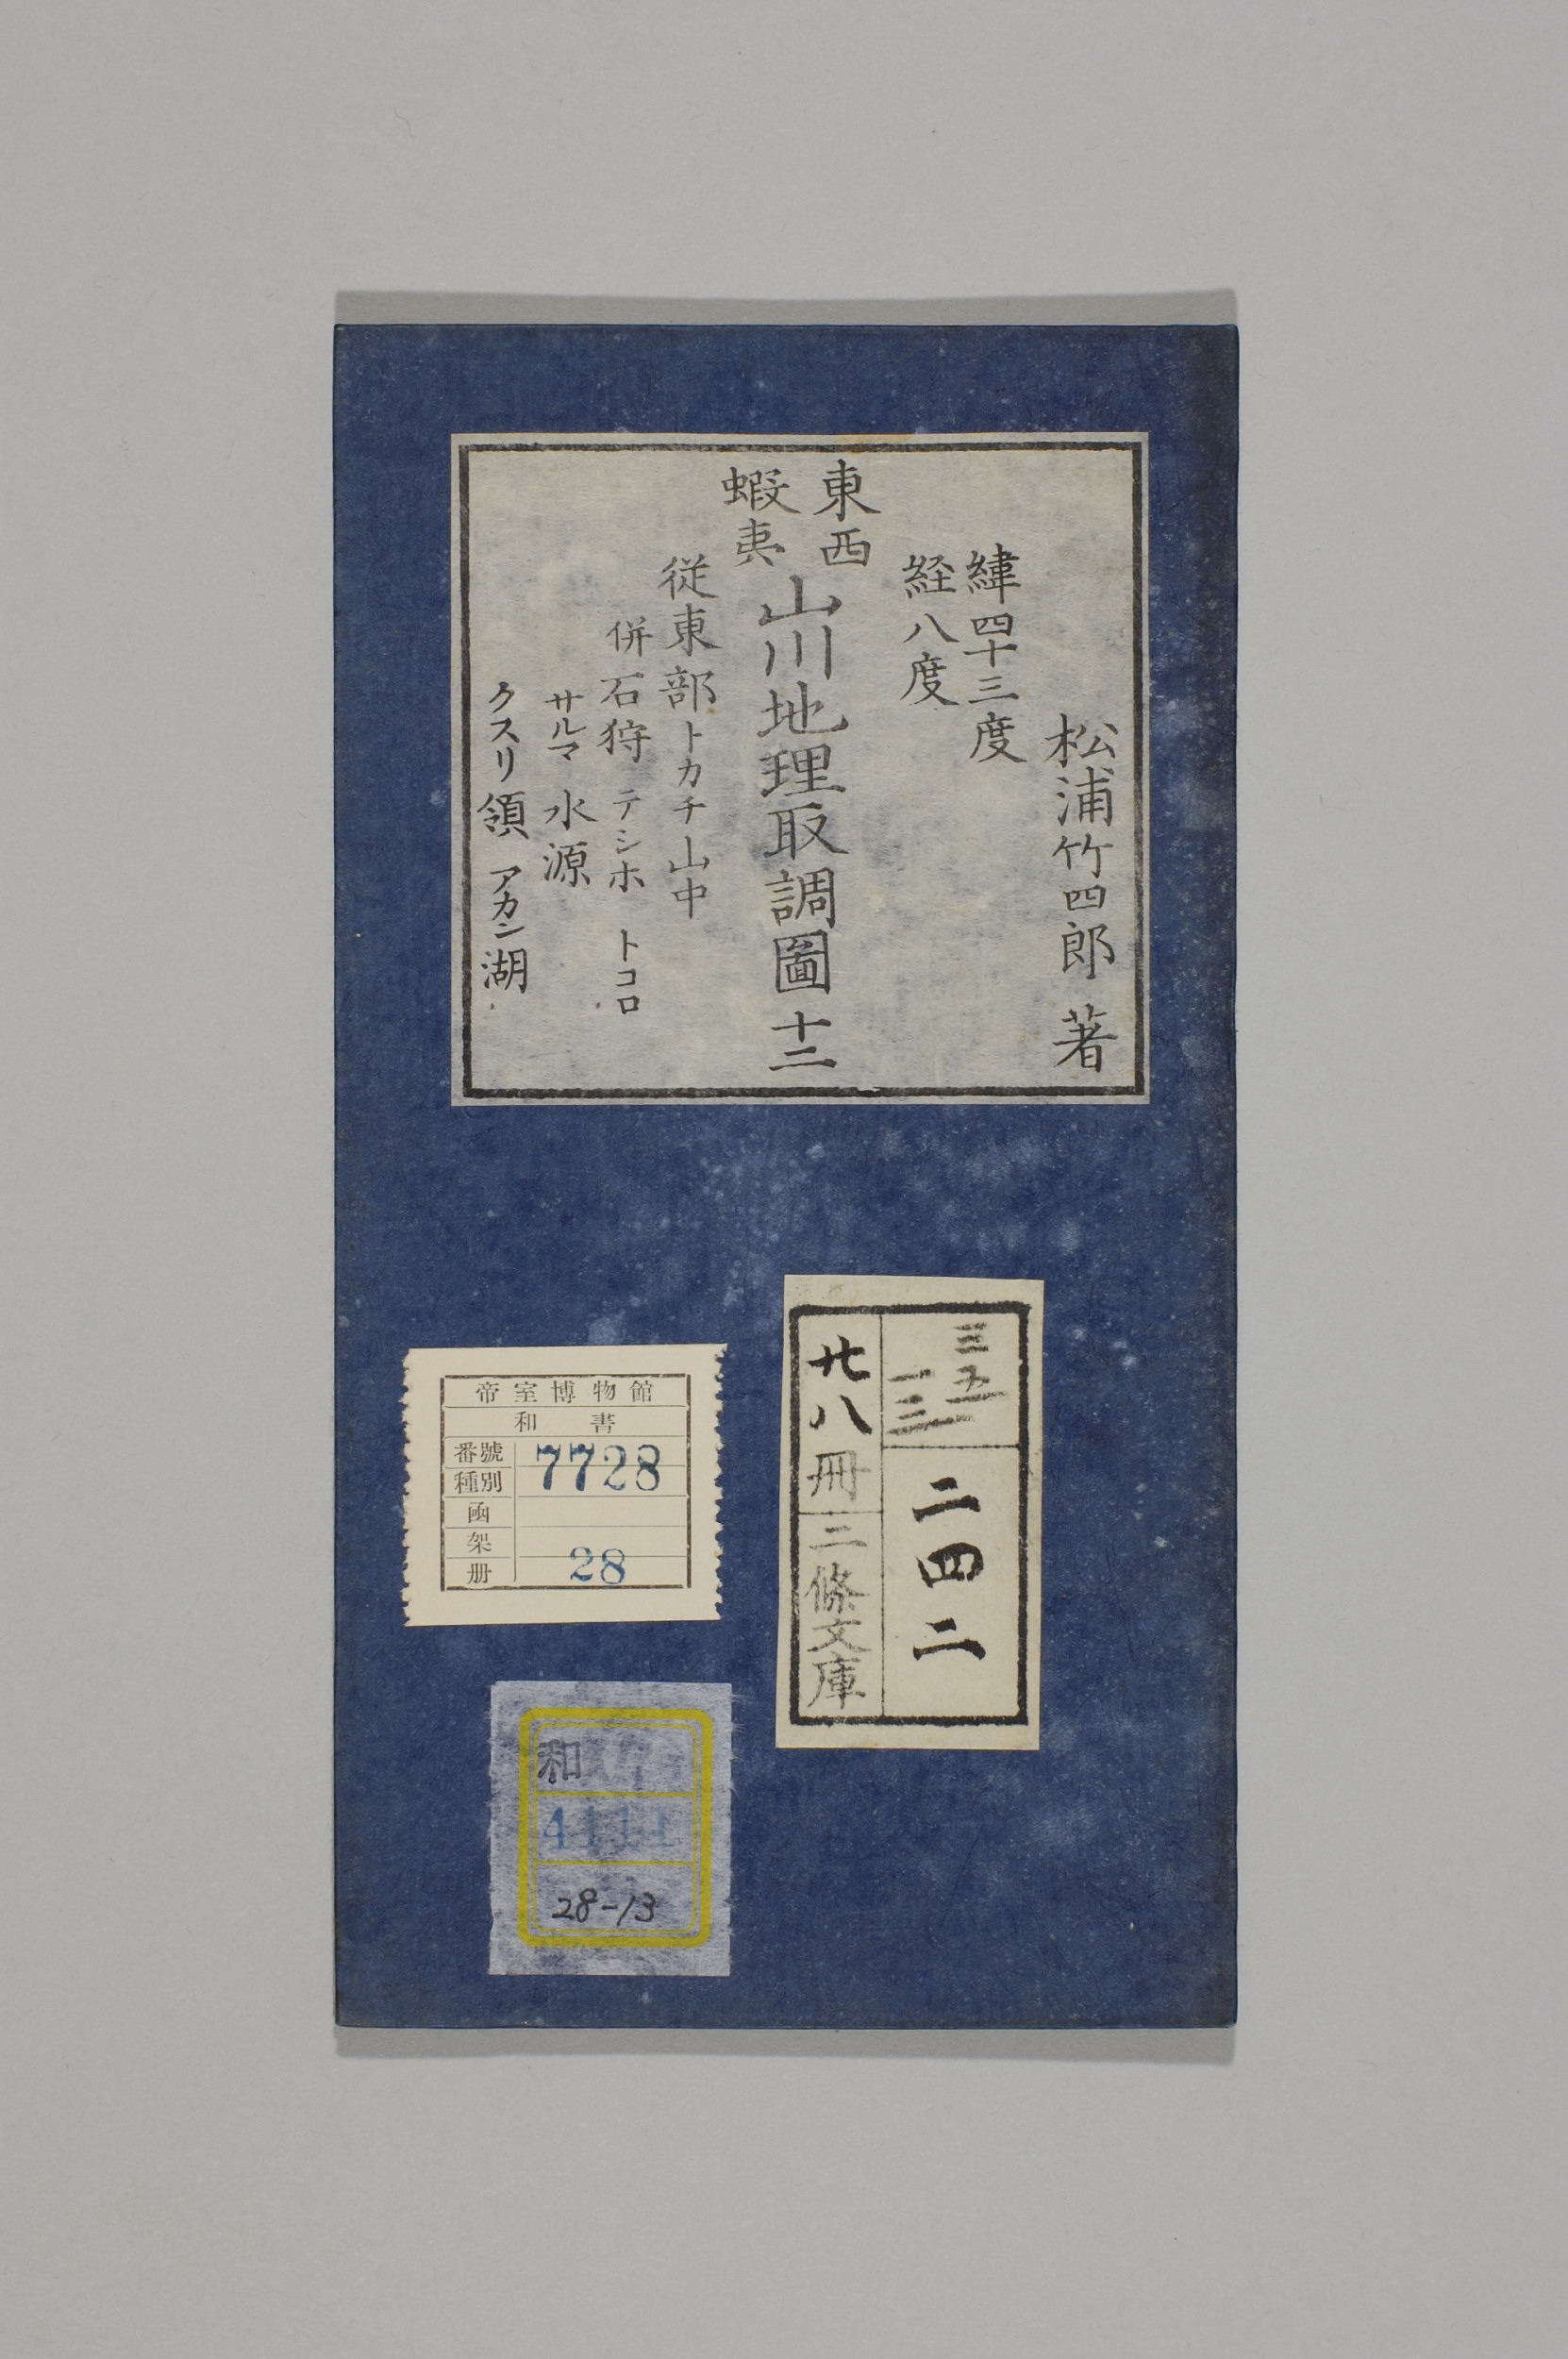 松浦竹四郎 著
緯四十三度
経八度
東西
蝦夷
山川地理取調圖 十二
従東部トカチ山中
併石狩 テシホ トコロ
サルマ 水源
クスリ領 アカン湖
三五
一三
二四二
廿八冊
三條文庫
帝室博物館
和書
番號 7728
種別
函
架
册 28
和
4111
28-13